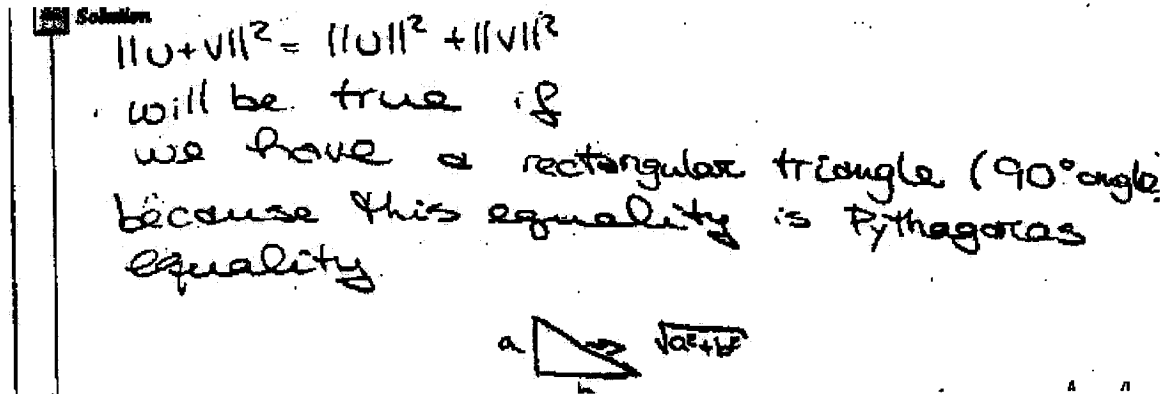 Solution
||U+V||² = ||U||² + ||V||²
will be true if
we have a rectangular triangle (90° angle)
because this equality is Pythagoras
equality.
a √a²+b²
b